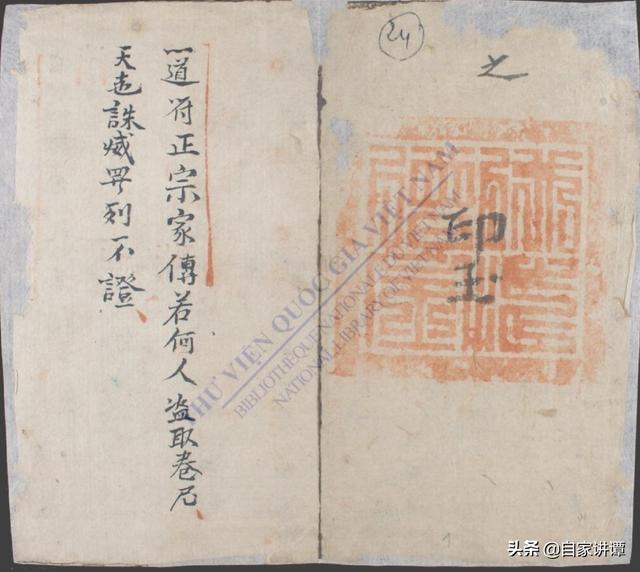 24
之
印玉
道符正宗家傳若何人盜取卷尼
天誅烕列不證
THƯ VIỆN QUỐC GIA VIỆT NAM
BIBLIOTHÈQUE NATIONALE DU VIETNAM
NATIONAL LIBRARY OF VIETNAM
1
头条 @自家讲谭